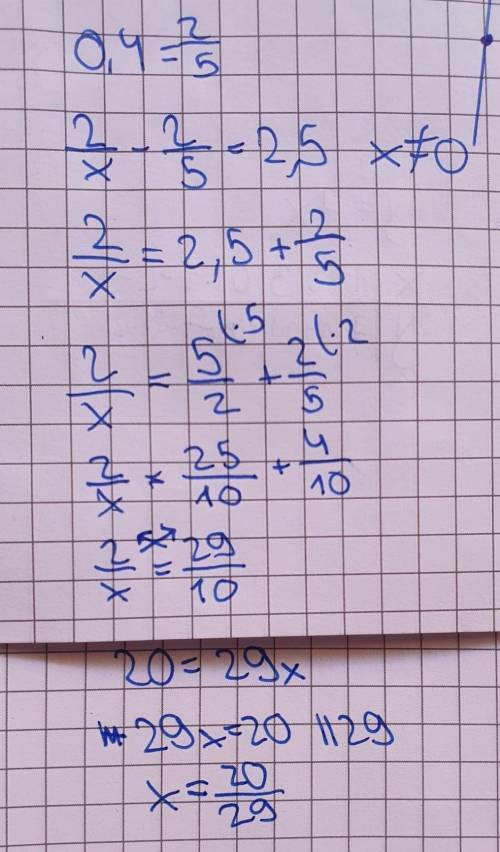 0,4 = 2/5
2/x - 2/5 = 2,5 x ≠ 0
2/x = 2,5 + 2/5
2/x = 5/2 (·5 + 2/5 (·2
2/x = 25/10 + 4/10
2/x = 29/10
20 = 29x
29x = 20 ||29
x = 20/29